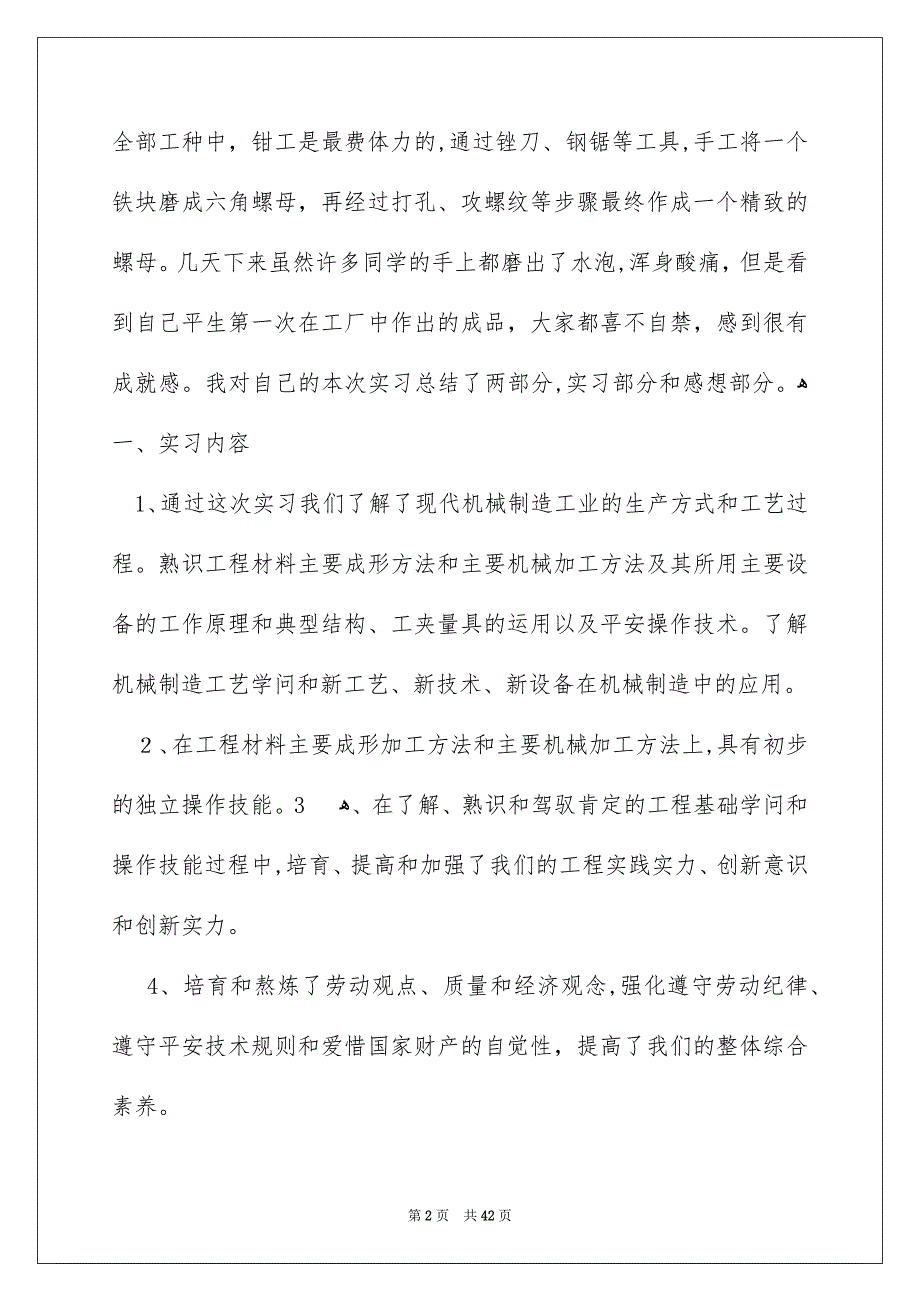 全部工种中，钳工是最费体力的,通过锉刀、钢锯等工具,手工将一个
铁块磨成六角螺母，再经过打孔、攻螺纹等步骤最终作成一个精致的
螺母。几天下来虽然许多同学的手上都磨出了水泡,浑身酸痛，但是看
到自己平生第一次在工厂中作出的成品，大家都喜不自禁，感到很有
成就感。我对自己的本次实习总结了两部分,实习部分和感想部分。ﻫ
一、实习内容
1、通过这次实习我们了解了现代机械制造工业的生产方式和工艺过
程。熟识工程材料主要成形方法和主要机械加工方法及其所用主要设
备的工作原理和典型结构、工夹量具的运用以及平安操作技术。了解
机械制造工艺学问和新工艺、新技术、新设备在机械制造中的应用。
２、在工程材料主要成形加工方法和主要机械加工方法上,具有初步
的独立操作技能。3 ﻫ、在了解、熟识和驾驭肯定的工程基础学问和
操作技能过程中,培育、提高和加强了我们的工程实践实力、创新意识
和创新实力。
4、培育和熬炼了劳动观点、质量和经济观念,强化遵守劳动纪律、
遵守平安技术规则和爱惜国家财产的自觉性，提高了我们的整体综合
素养。
第 2 页 共 42 页